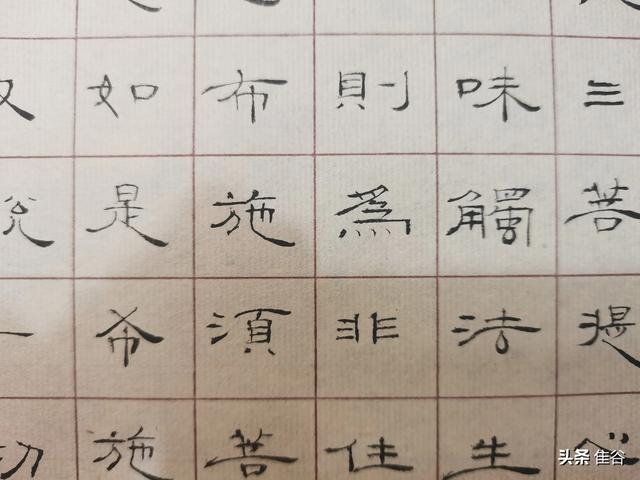 三菩提心
味觸法生
則爲非住
布施須菩
如是布施
又說一切
头条 隹谷